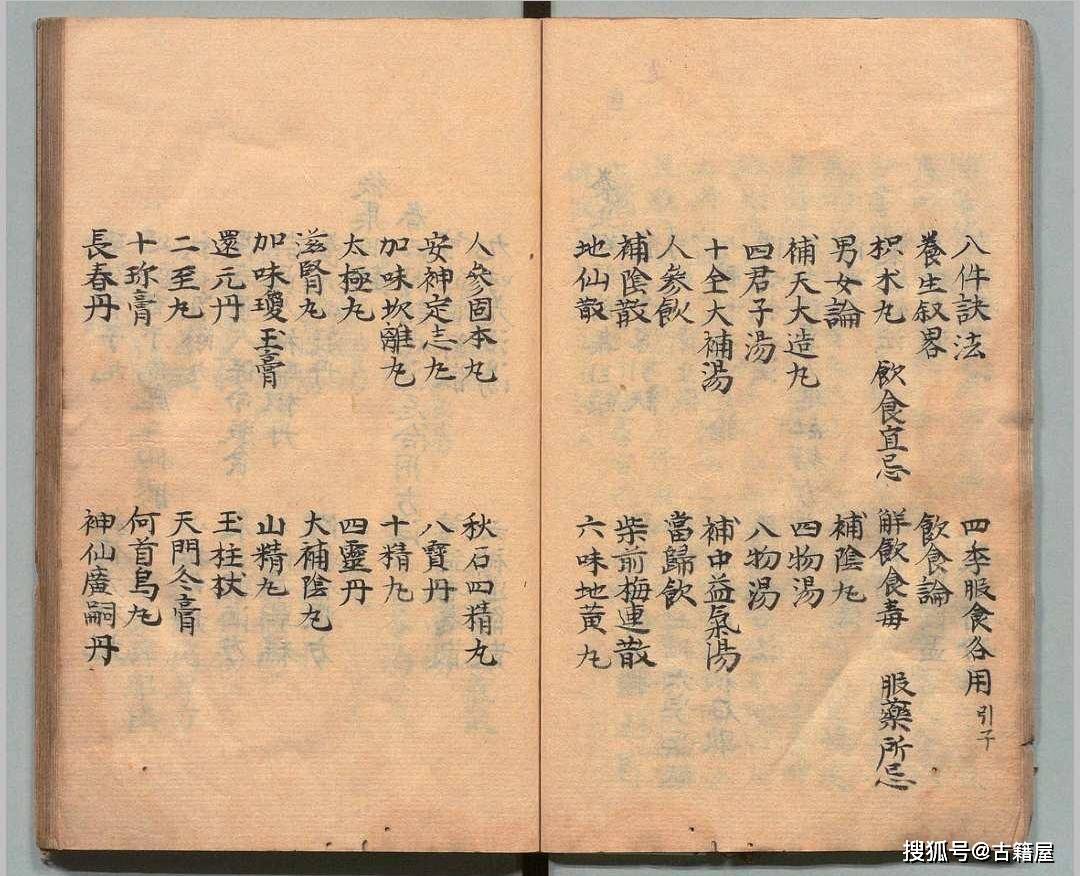 八件訣法 四季服食各用引子
養生叙畧 飲食論
枳朮丸 飲食宜忌 解飲食毒 服藥所忌
男女論 補陰丸
補天大造丸 四物湯
四君子湯 八物湯
十全大補湯 補中益氣湯
人參飲 當歸飲
補陰散 柴前梅連散
地仙散 六味地黃丸
人參固本丸 秋石四精丸
安神定志丸 八寶丹
加味坎離丸 十精丸
太極丸 四靈丹
滋腎丸 大補陰丸
加味瓊玉膏 山精丸
還元丹 玉柱杖
二至丸 天門冬膏
十珎膏 何首烏丸
長春丹 神仙廣嗣丹
搜狐号@古籍屋